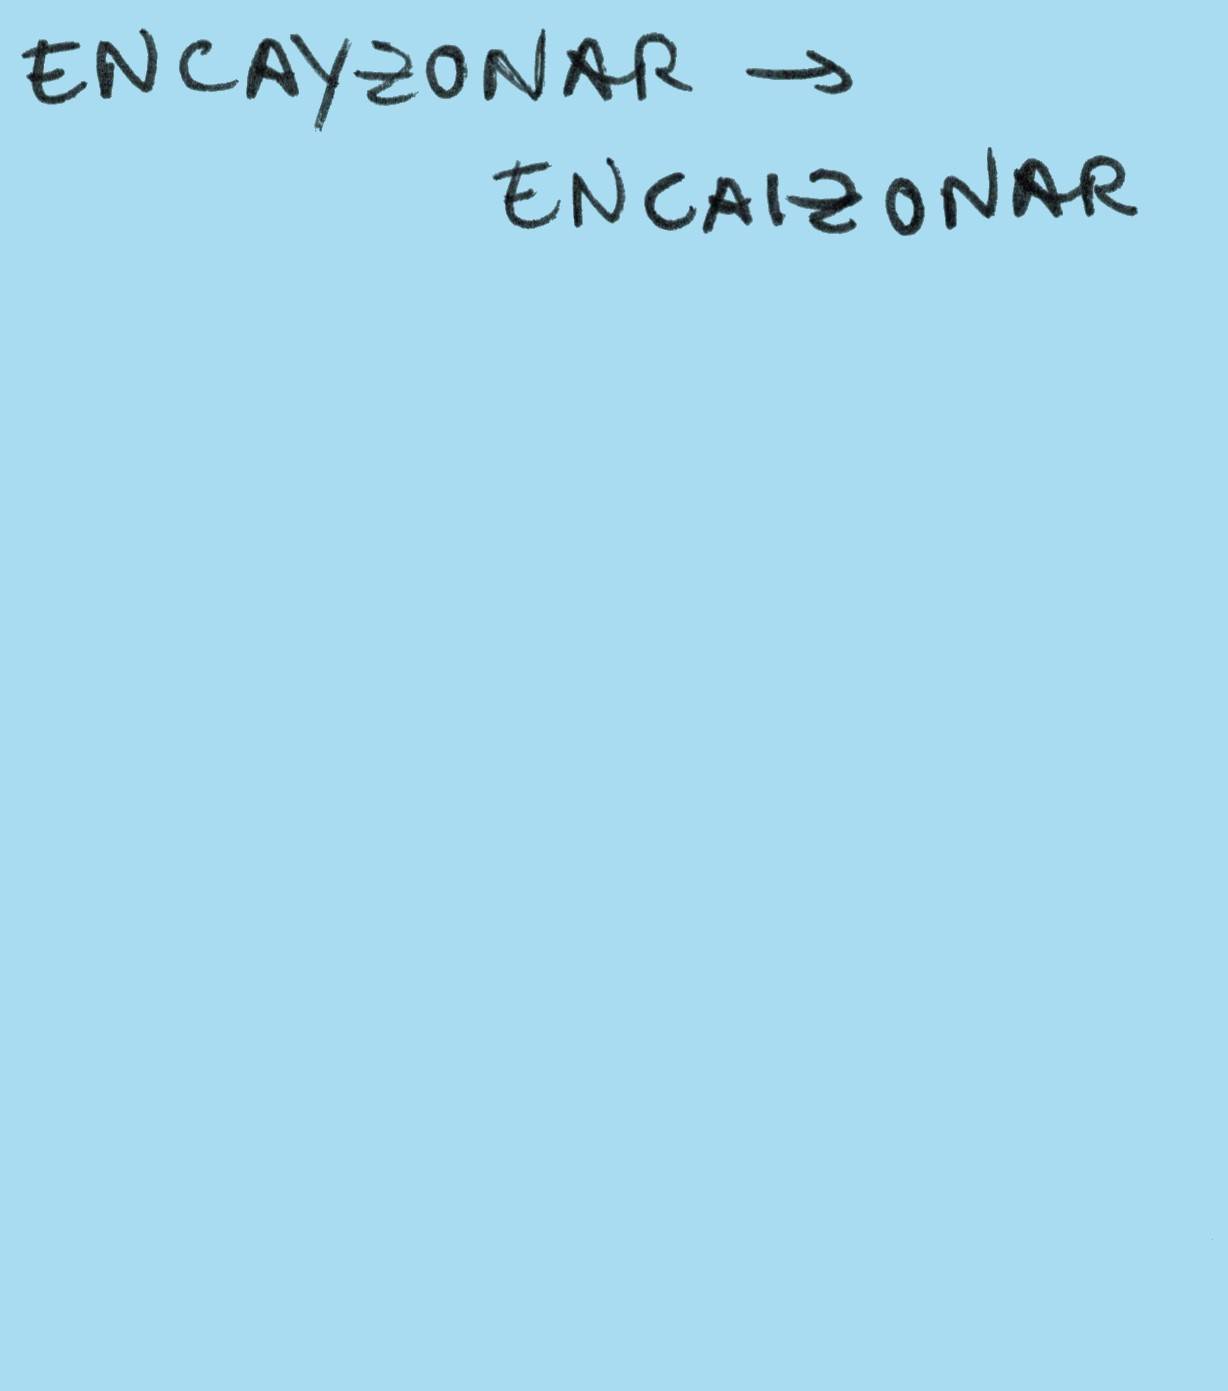 ENCAYZONAR →
ENCAIZONAR